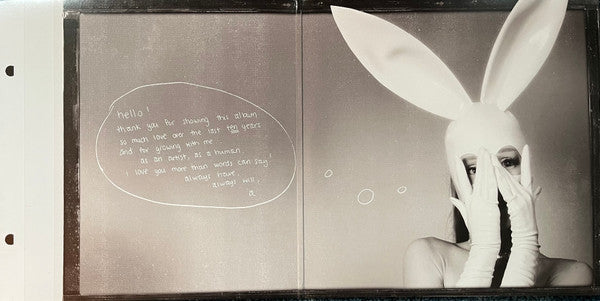 hello!
thank you for showing this album
so much love over the last ten years
and for growing with me
as an artist, as a human.
i love you more than words can say!
always have
always will,
a